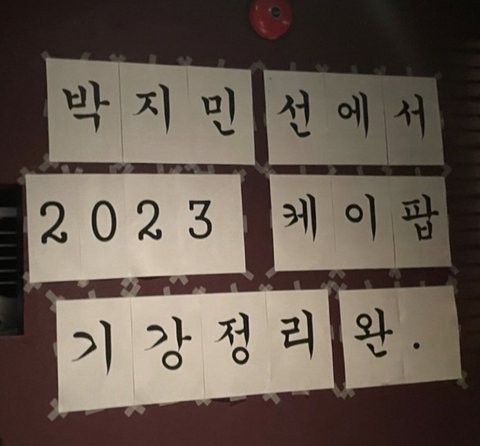 박지민 선에서
2023 케이팝
기강정리 완.